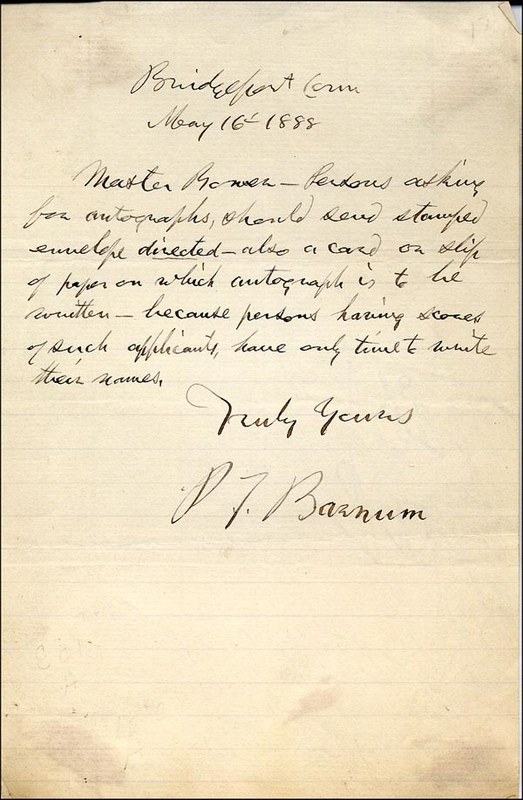 Bridgeport Conn
May 16 - 1888
Master Bowen - Persons asking
for autographs, should send stamped
envelope directed - also a card or slip
of paper on which autograph is to be
written - because persons having scores
of such applicants, have only time to write
their names.
Truly Yours
P T. Barnum